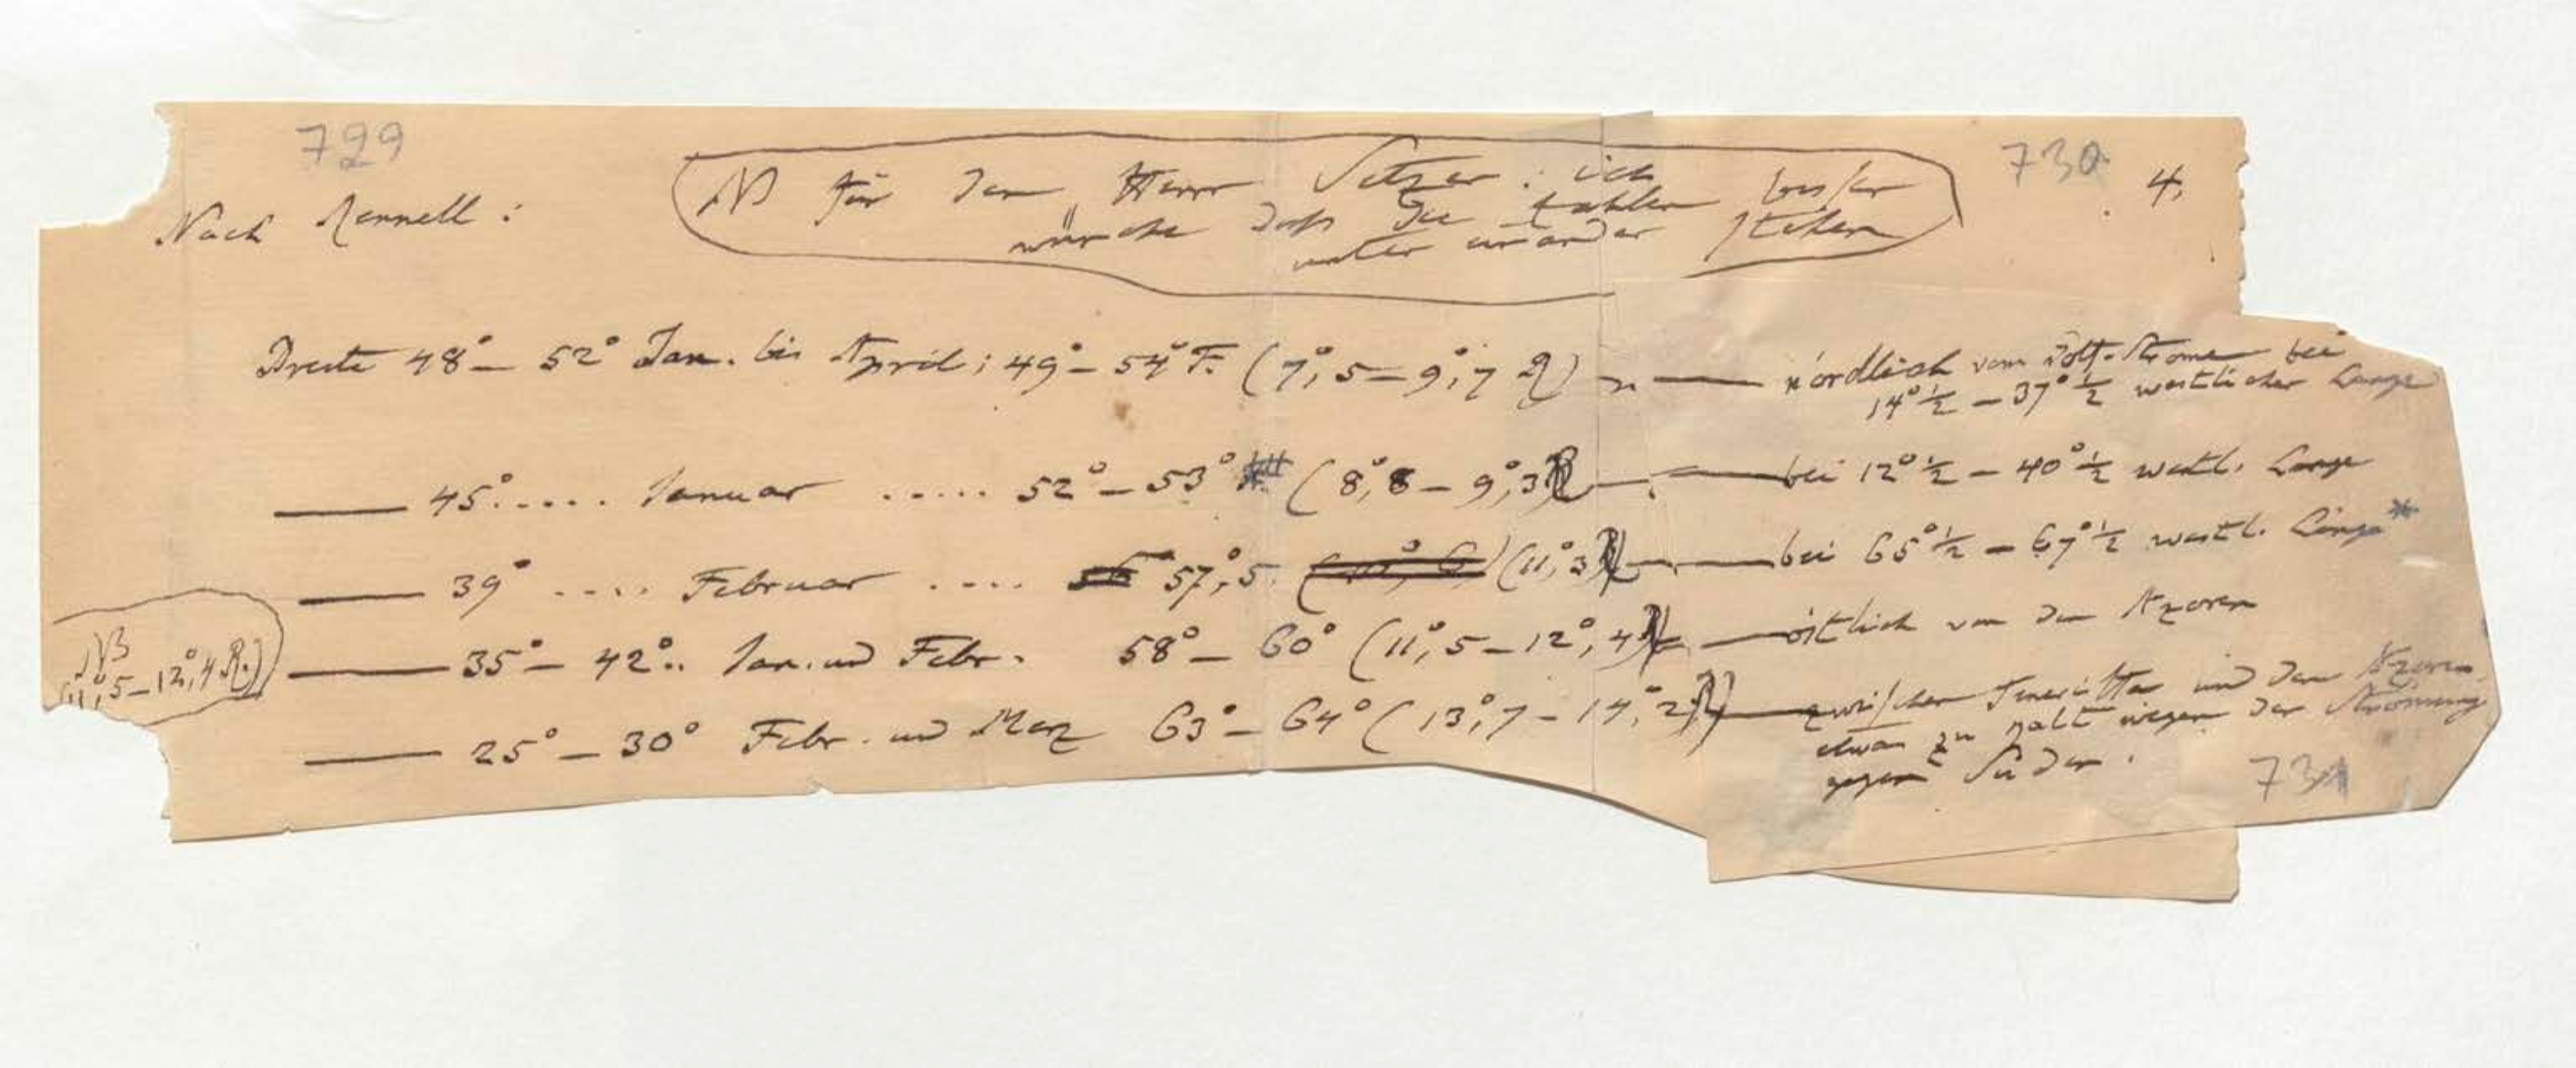 729
730
4,
Nach Rennell :
NB für den Herrn Setzer : ich
wünsche daß die Zahlen besser
unter einander stehen
Breite 48° – 52° Jan. bis April ; 49° – 54° F. (7°,5 – 9°,7 R) — nördlich vom Golf-Strome bei
14°½ – 37°½ westlicher Lange
— 45° ..... Januar ..... 52° – 53° (8°,8 – 9°,3 R) — bei 12°½ – 40°½ westl. Lange
— 39° .... Februar .... 57°,5 (11°,3 R) — bei 65°½ – 67°½ westl. Länge*
— 35° – 42° .. Jan. und Febr. 58° – 60° (11°,5 – 12°,4 R) — östlich von den Azoren
NB
(11°,5 – 12°,4 R.)
— 25° – 30° Febr. und Merz 63° – 64° (13°,7 – 14°,2 R) — zwischen Teneriffa und den Azoren
etwas zu kalt wegen der Strömung
gegen Süden .
731